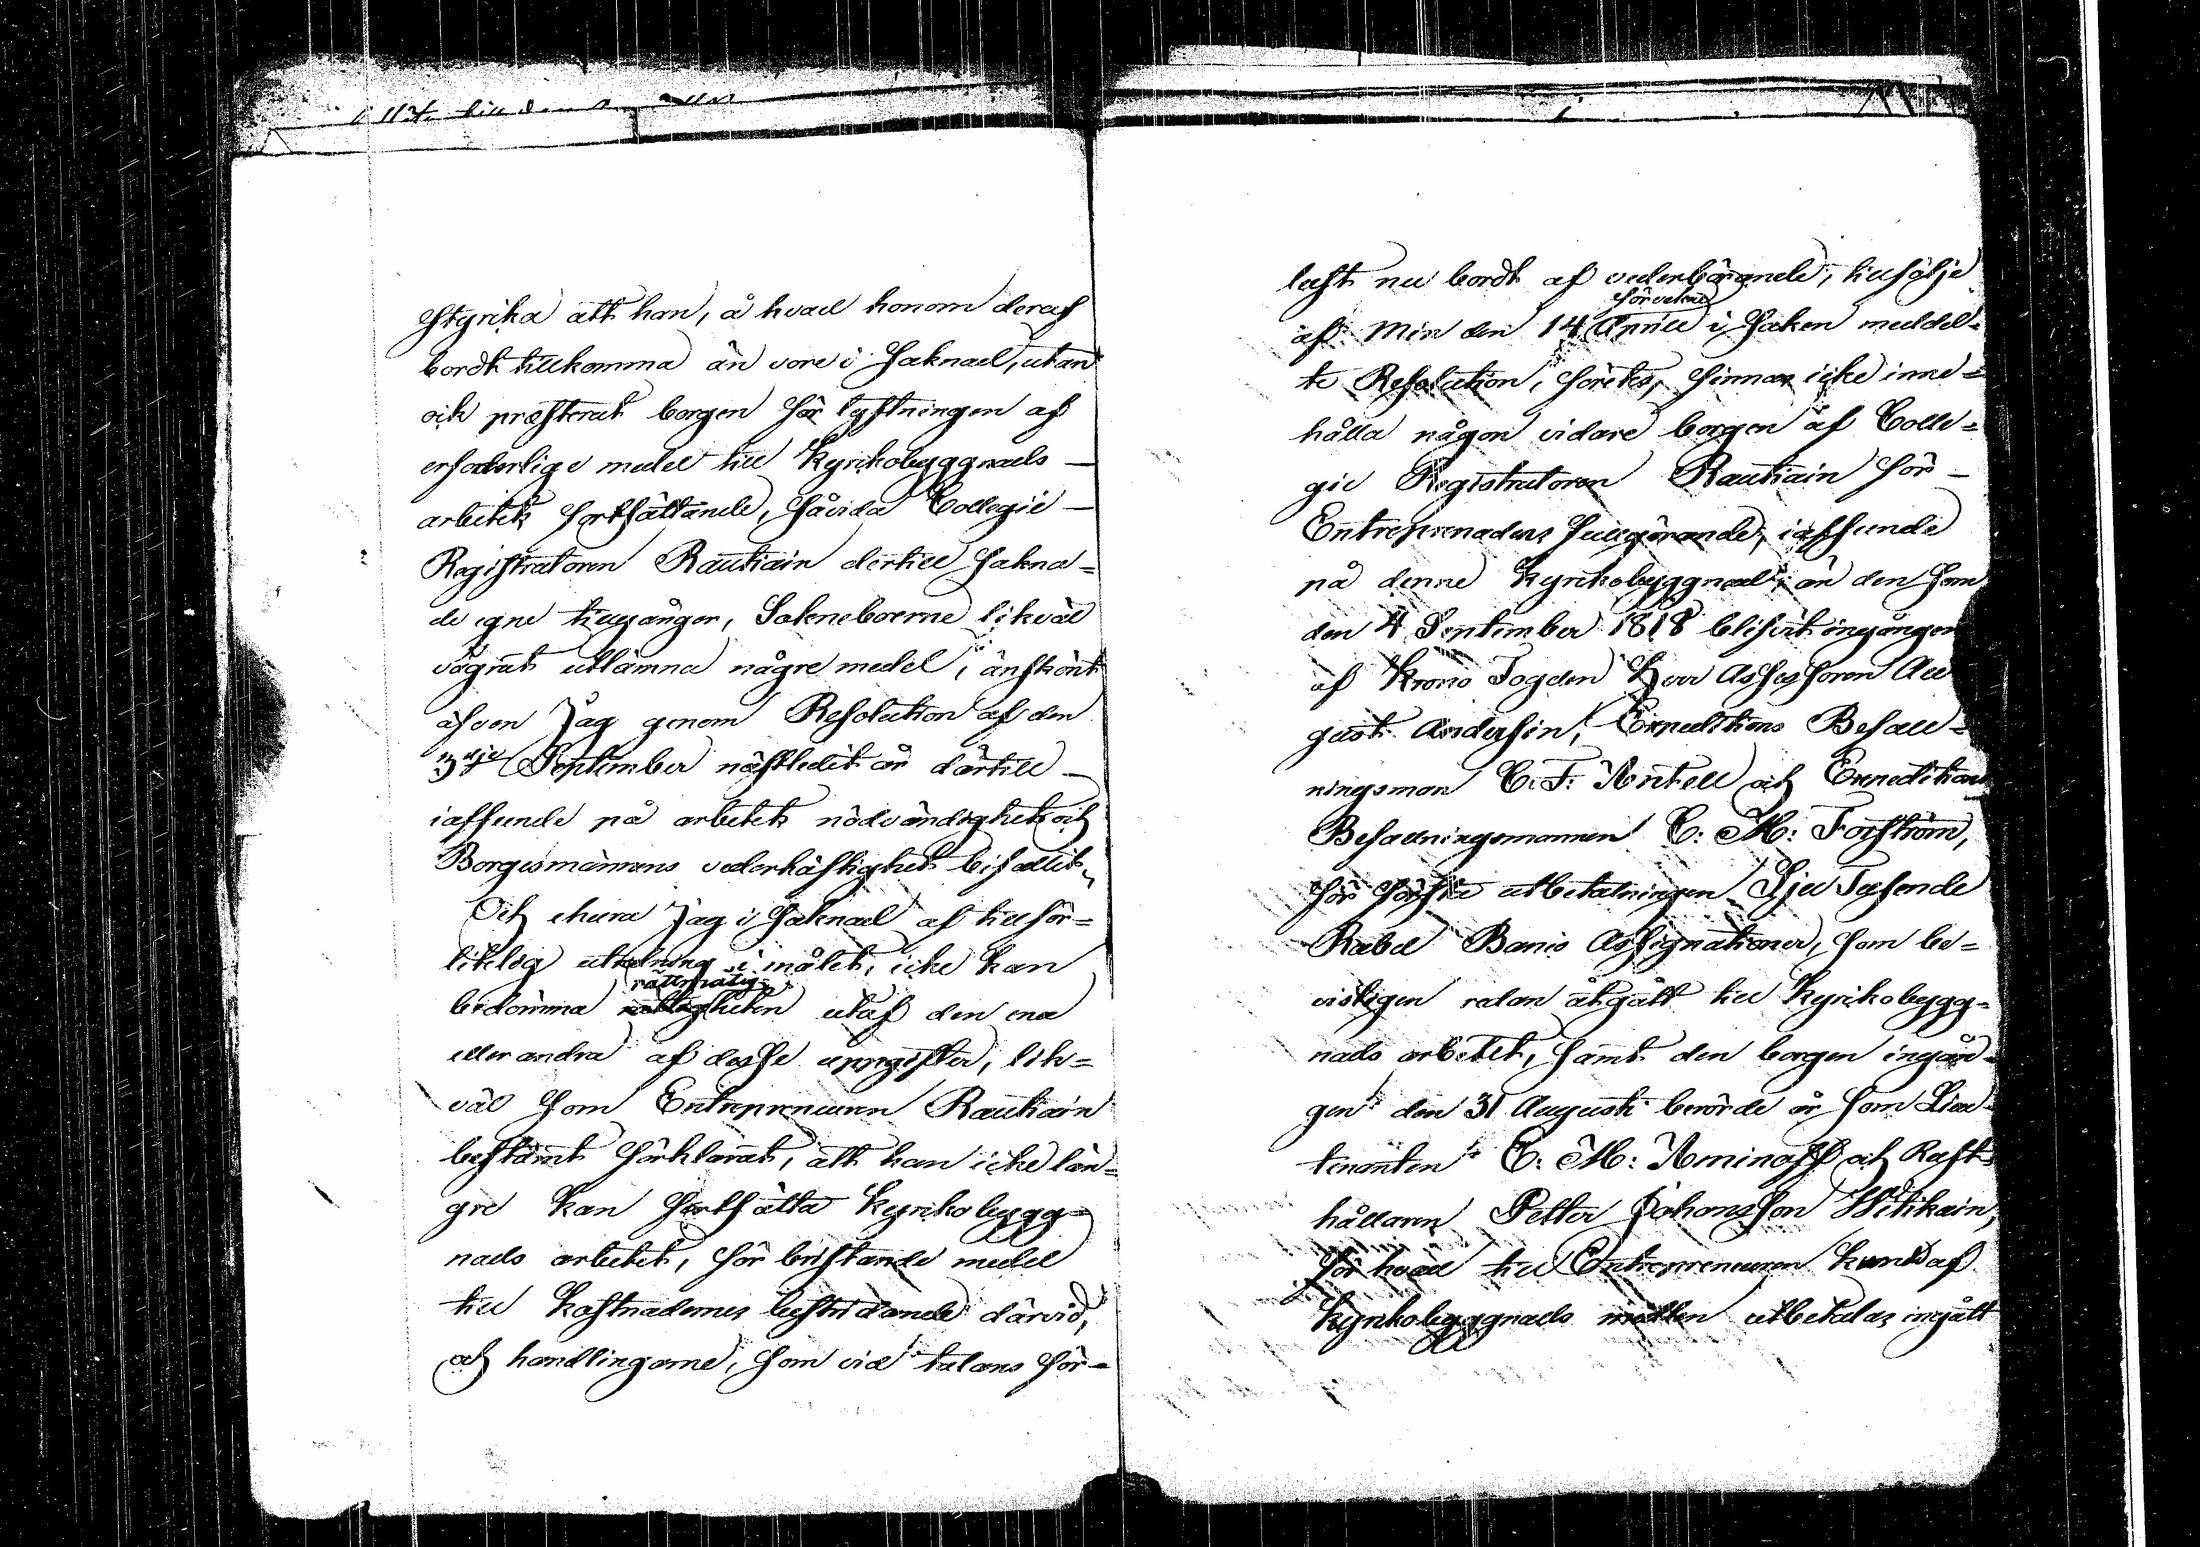 styrka att han, å hvad honom deraf
bordt tillkomma än vore i saknad, utan
ock præsterat borgen för lyftningen af
erforderlige medel till Kyrkobyggnads
arbetets fortsättande, såvida Collegii
Registratoren Rautiain dertill sakna-
de egne tillgångar, Sokneboerne likväl
vägrat utlämna någre medel, änskönt
äfven Jag genom Resolution af den
3dje September nästledit år därtill
i affseende på arbetets nödvändighet och
Borgesmännens vederhäftighet bifallit.
Och ehuru Jag i saknad af tillför-
litelig utredning i målet, icke kan
bedömma rättmätig-
heten utaf den ena
eller andra af desse uppgifter, lik-
väl som Entrepreneuren Rautiain
bestämt förklarat, att han icke län-
gre kan fortsätta Kyrkobygg-
nads arbetet, för bristande medel
till kostnadernes bestridande därvid,
och handlingarne, som vid talans för-
lust nu bordt af vederbörande, tillfölje
förvekne
af Min den 14 Aprill i saken meddel-
te Resolution, företes, finnas icke inne-
hålla någon vidare borgen af Colle-
gii Registratoren Rautiain för
Entreprenadens fullgörande, i affseende
på denne Kyrkobyggnad, än den som
den 4 September 1818 blifvit ingången
af Krono Fogden Herr Assessoren Au
gust Andersin, Expeditions Befall-
ningsman C. F. Antell och Expeditions
Befallningsmannen C: M: Forström,
för första utbetalningen Sju Tusende
Rubel Banco Assignationer, som be-
visligen redan åtgått till Kyrkobygg-
nads arbetet, samt den borgen ingån-
gen den 31 Augusti berörde år som Lieu-
tenanten C: M: Aminoff och Rust-
hållaren Petter Johansson Witikain,
för hvad till Entrepreneuren kunde af
Kyrkobyggnads medlen utbetalas ingått